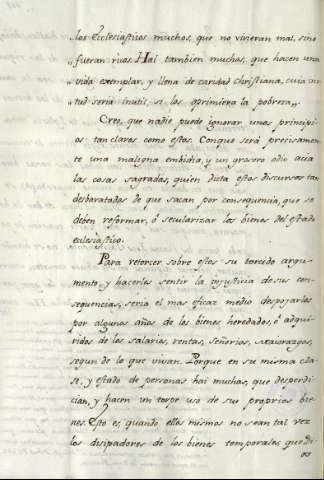 los Ecclesiasticos muchos, que no vivieran mal, sino
fueran ricos. Hai tambien muchos, que hacen una
vida exemplar, y llena de caridad Christiana, cuia vir
tud seria inutil, si los oprimiera la pobreza.
Creo, que nadie puede ignorar unos principi
os tan claros como estos. Conque será precisamen
te una maligna embidia, y un grosero odio acia
las cosas sagradas, quien dicta estos discursos tan
desbaratados de que sacan por consequencia, que se
deben reformar, ó secularizar los bienes del estado
eclesiastico.
Para retorcer sobre estos su torcido argu-
mento, y hacerles sentir la injusticia de sus con
sequencias, seria el mas eficaz medio despojarlos
por algunos años de los bienes heredados, ó adqui
ridos de los salarios, rentas, señorios, Maiorazgos,
segun de lo que vivan. Porque en su misma cla
se, y estado de personas hai muchos, que desperdi
cian, y hacen un torpe uso de sus proprios bie
nes. Esto es, quando ellos mismos no sean tal vez
los disipadores de los bienes temporales que Di
os